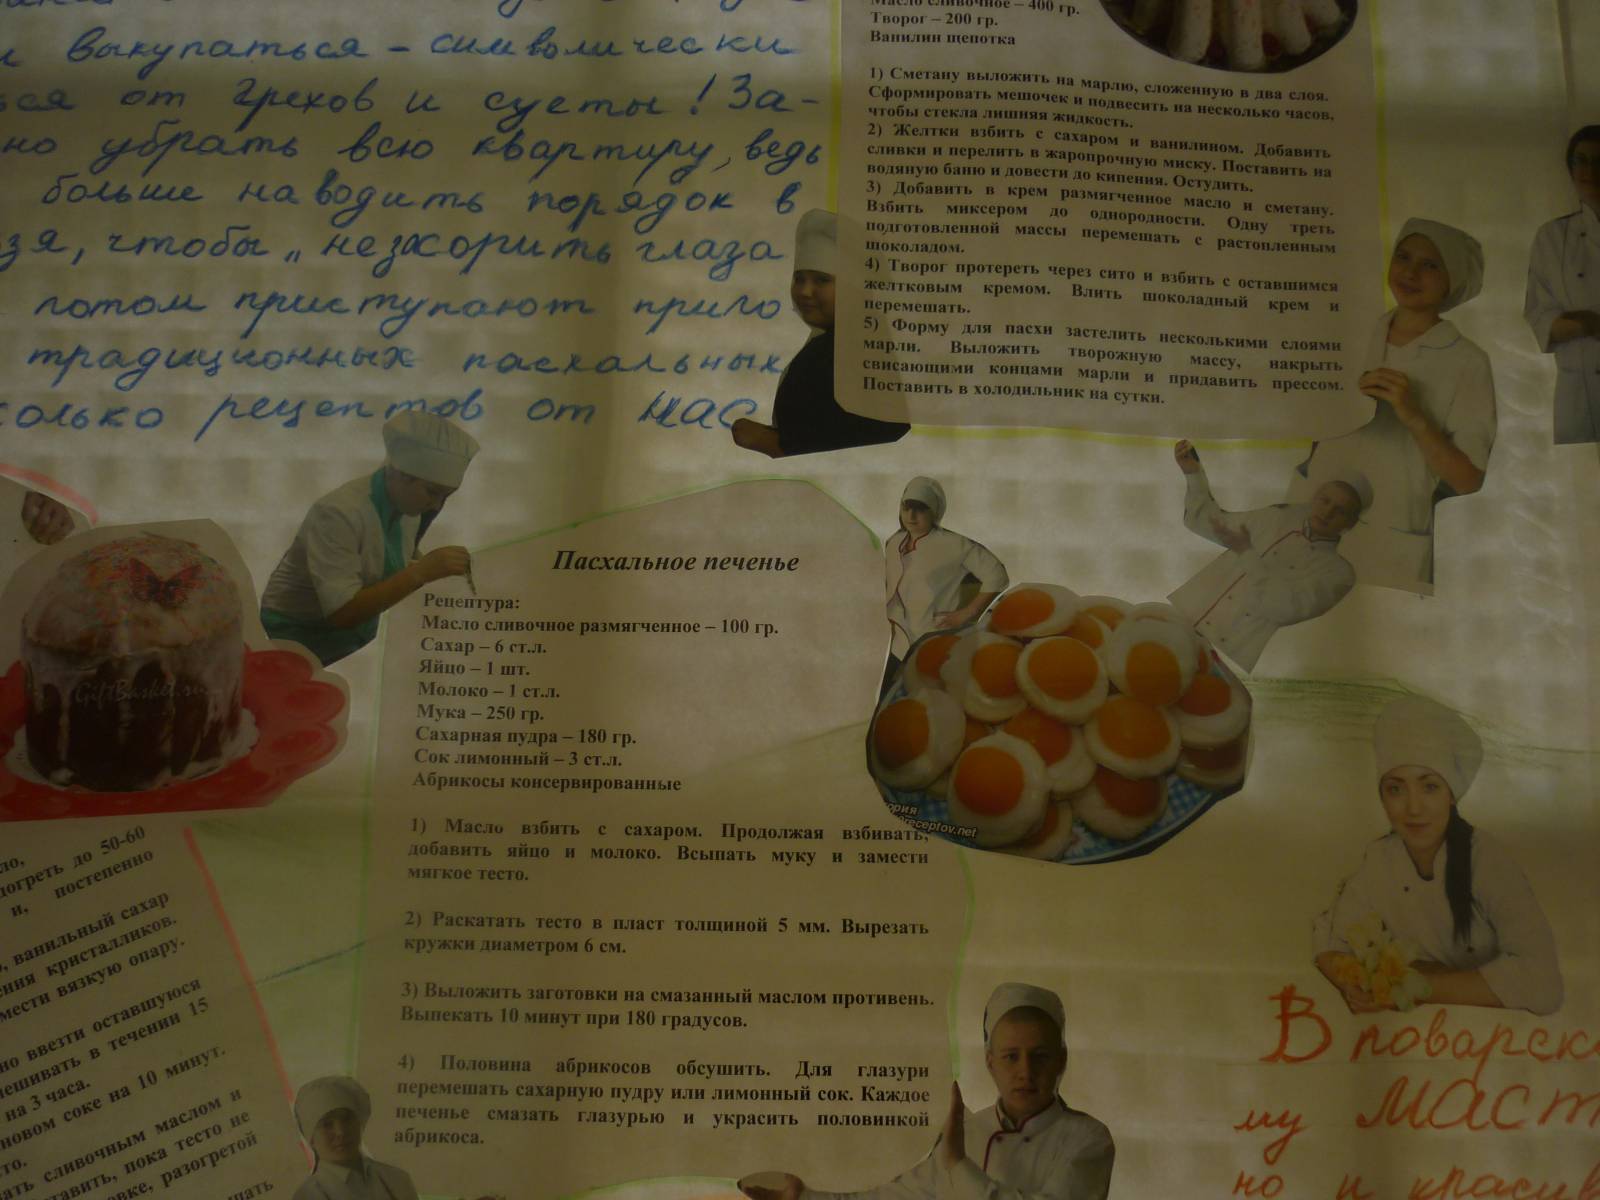 и выкупаться – символически
ься от грехов и суеты! За-
но убрать всю квартиру, ведь
больше наводить порядок в
зя, чтобы „незхорить глаза
потом приступают приго
традиционных пасхальных
сколько рецептов от НАС
Масло сливочное – 400 гр.
Творог – 200 гр.
Ванилин щепотка
1) Сметану выложить на марлю, сложенную в два слоя.
Сформировать мешочек и подвесить на несколько часов,
чтобы стекла лишняя жидкость.
2) Желтки взбить с сахаром и ванилином. Добавить
сливки и перелить в жаропрочную миску. Поставить на
водяную баню и довести до кипения. Остудить.
3) Добавить в крем размягченное масло и сметану.
Взбить миксером до однородности. Одну треть
подготовленной массы перемешать с растопленным
шоколадом.
4) Творог протереть через сито и взбить с оставшимся
желтковым кремом. Влить шоколадный крем и
перемешать.
5) Форму для пасхи застелить несколькими слоями
марли. Выложить творожную массу, накрыть
свисающими концами марли и придавить прессом.
Поставить в холодильник на сутки.
Пасхальное печенье
Рецептура:
Масло сливочное размягченное – 100 гр.
Сахар – 6 ст.л.
Яйцо – 1 шт.
Молоко – 1 ст.л.
Мука – 250 гр.
Сахарная пудра – 180 гр.
Сок лимонный – 3 ст.л.
Абрикосы консервированные
1) Масло взбить с сахаром. Продолжая взбивать,
добавить яйцо и молоко. Всыпать муку и замести
мягкое тесто.
2) Раскатать тесто в пласт толщиной 5 мм. Вырезать
кружки диаметром 6 см.
3) Выложить заготовки на смазанный маслом противень.
Выпекать 10 минут при 180 градусов.
4) Половина абрикосов обсушить. Для глазури
перемешать сахарную пудру или лимонный сок. Каждое
печенье смазать глазурью и украсить половинкой
абрикоса.
GiftBasket.ru
ория
receptov.net
ло,
догреть до 50-60
и, постепенно
о, ванильный сахар
ения кристалликов.
мести вязкую опару.
но ввезти оставшуюся
мешивать в течении 15
на 3 часа.
новом соке на 10 минут.
сто.
ать сливочным маслом и
тавить, пока тесто не
овке, разогретой
В поварско
му МАСТ
но и красив